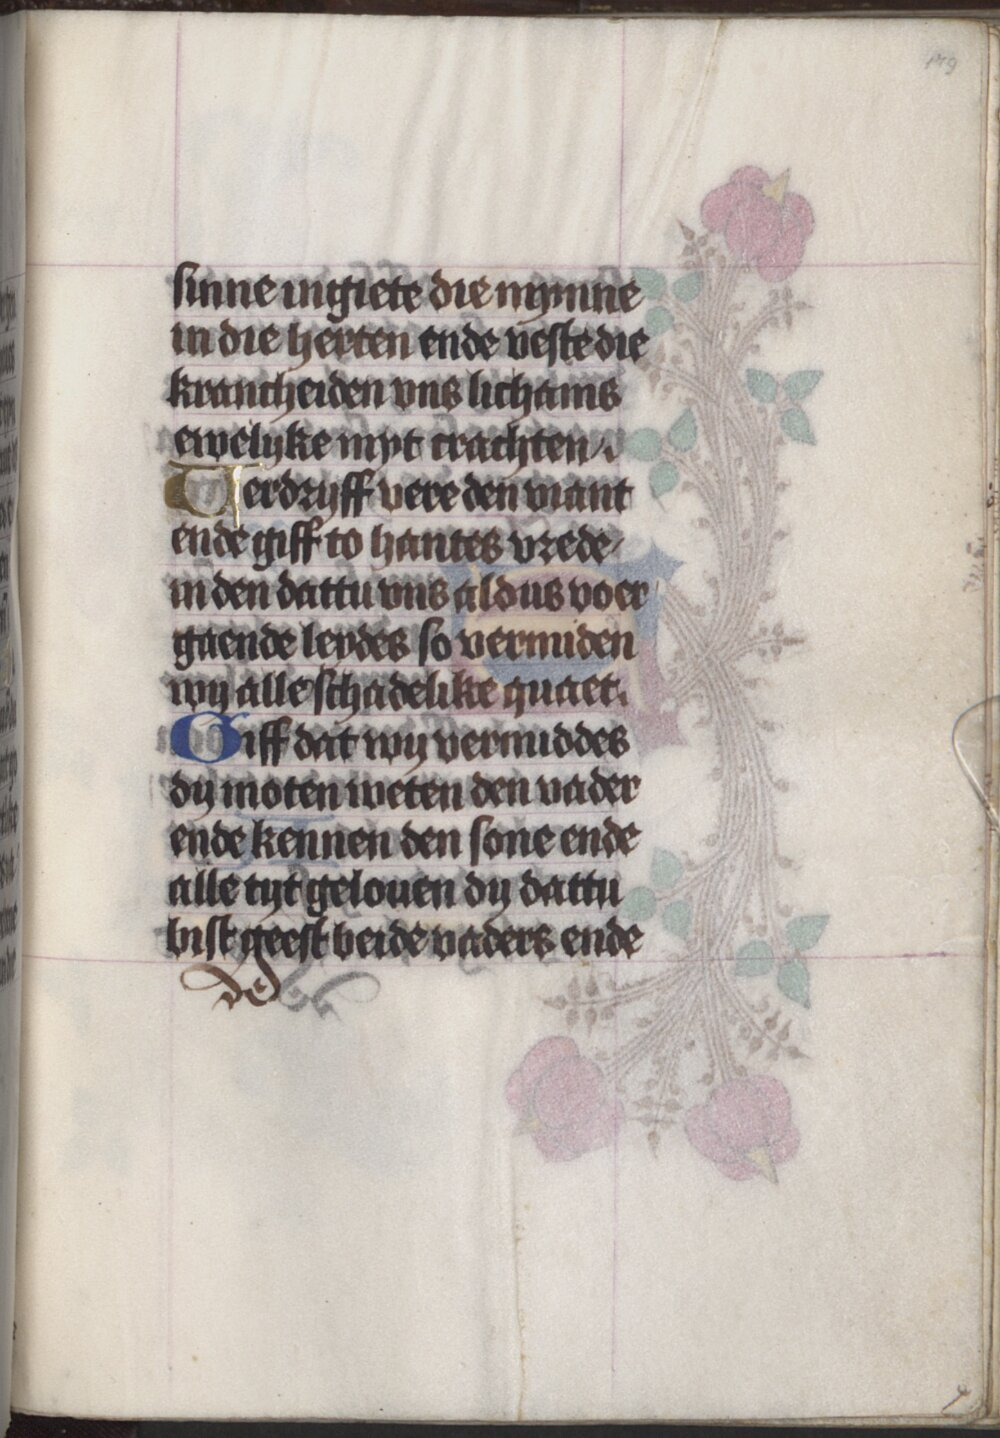 179
sinne ingiete die mynne
in die herten ende veste die
krancheiden vns lichams
ewelyke myt crachten
Verdryff vere den viant
ende giff to hantes vrede
in den dattu vns aldus voer
gaende leydes so vermiden
wy alle schadelike quaet.
Giff dat wy vermiddes
dy moten weten den vader
ende kennen den sone ende
alle tyt gelouen dy dattu
bist geest beide vaders ende